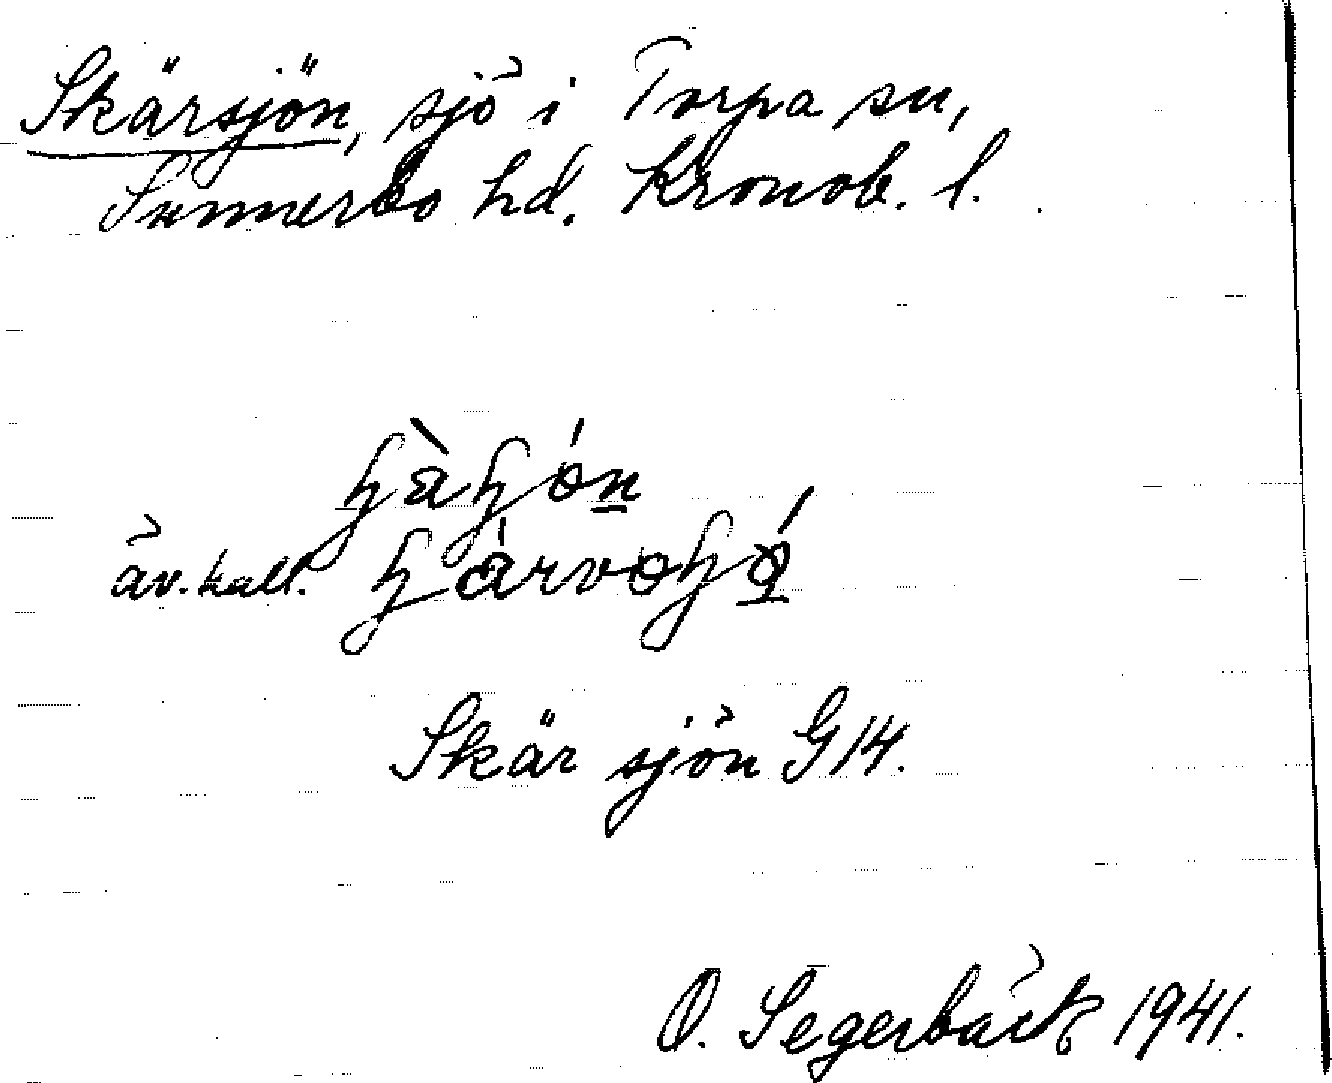 Skärsjön, sjö i Torpa sn,
Sunnerbo hd. Kronob. l.
äv. kall.
Skär sjön G14.
O. Segerbäck 1941.